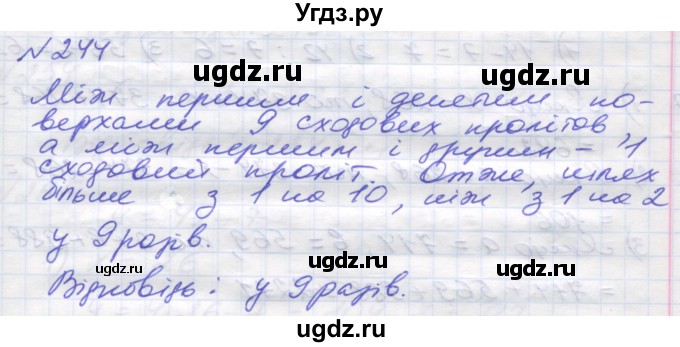 Угдз.ру
№ 244
ugdz.ru ugdz.ru
Між першим і десятым по-
верхами 9 сходових пролітов,
а між першим і другим – 1
сходовий проліт. Отже, шлях
ugdz.ru ugdz.ru
більше з 1 на 10, ніж з 1 на 2
у 9 разів.
ugdz.ru
Відповідь: у 9 разів.
ugdz.ru ugdz.ru